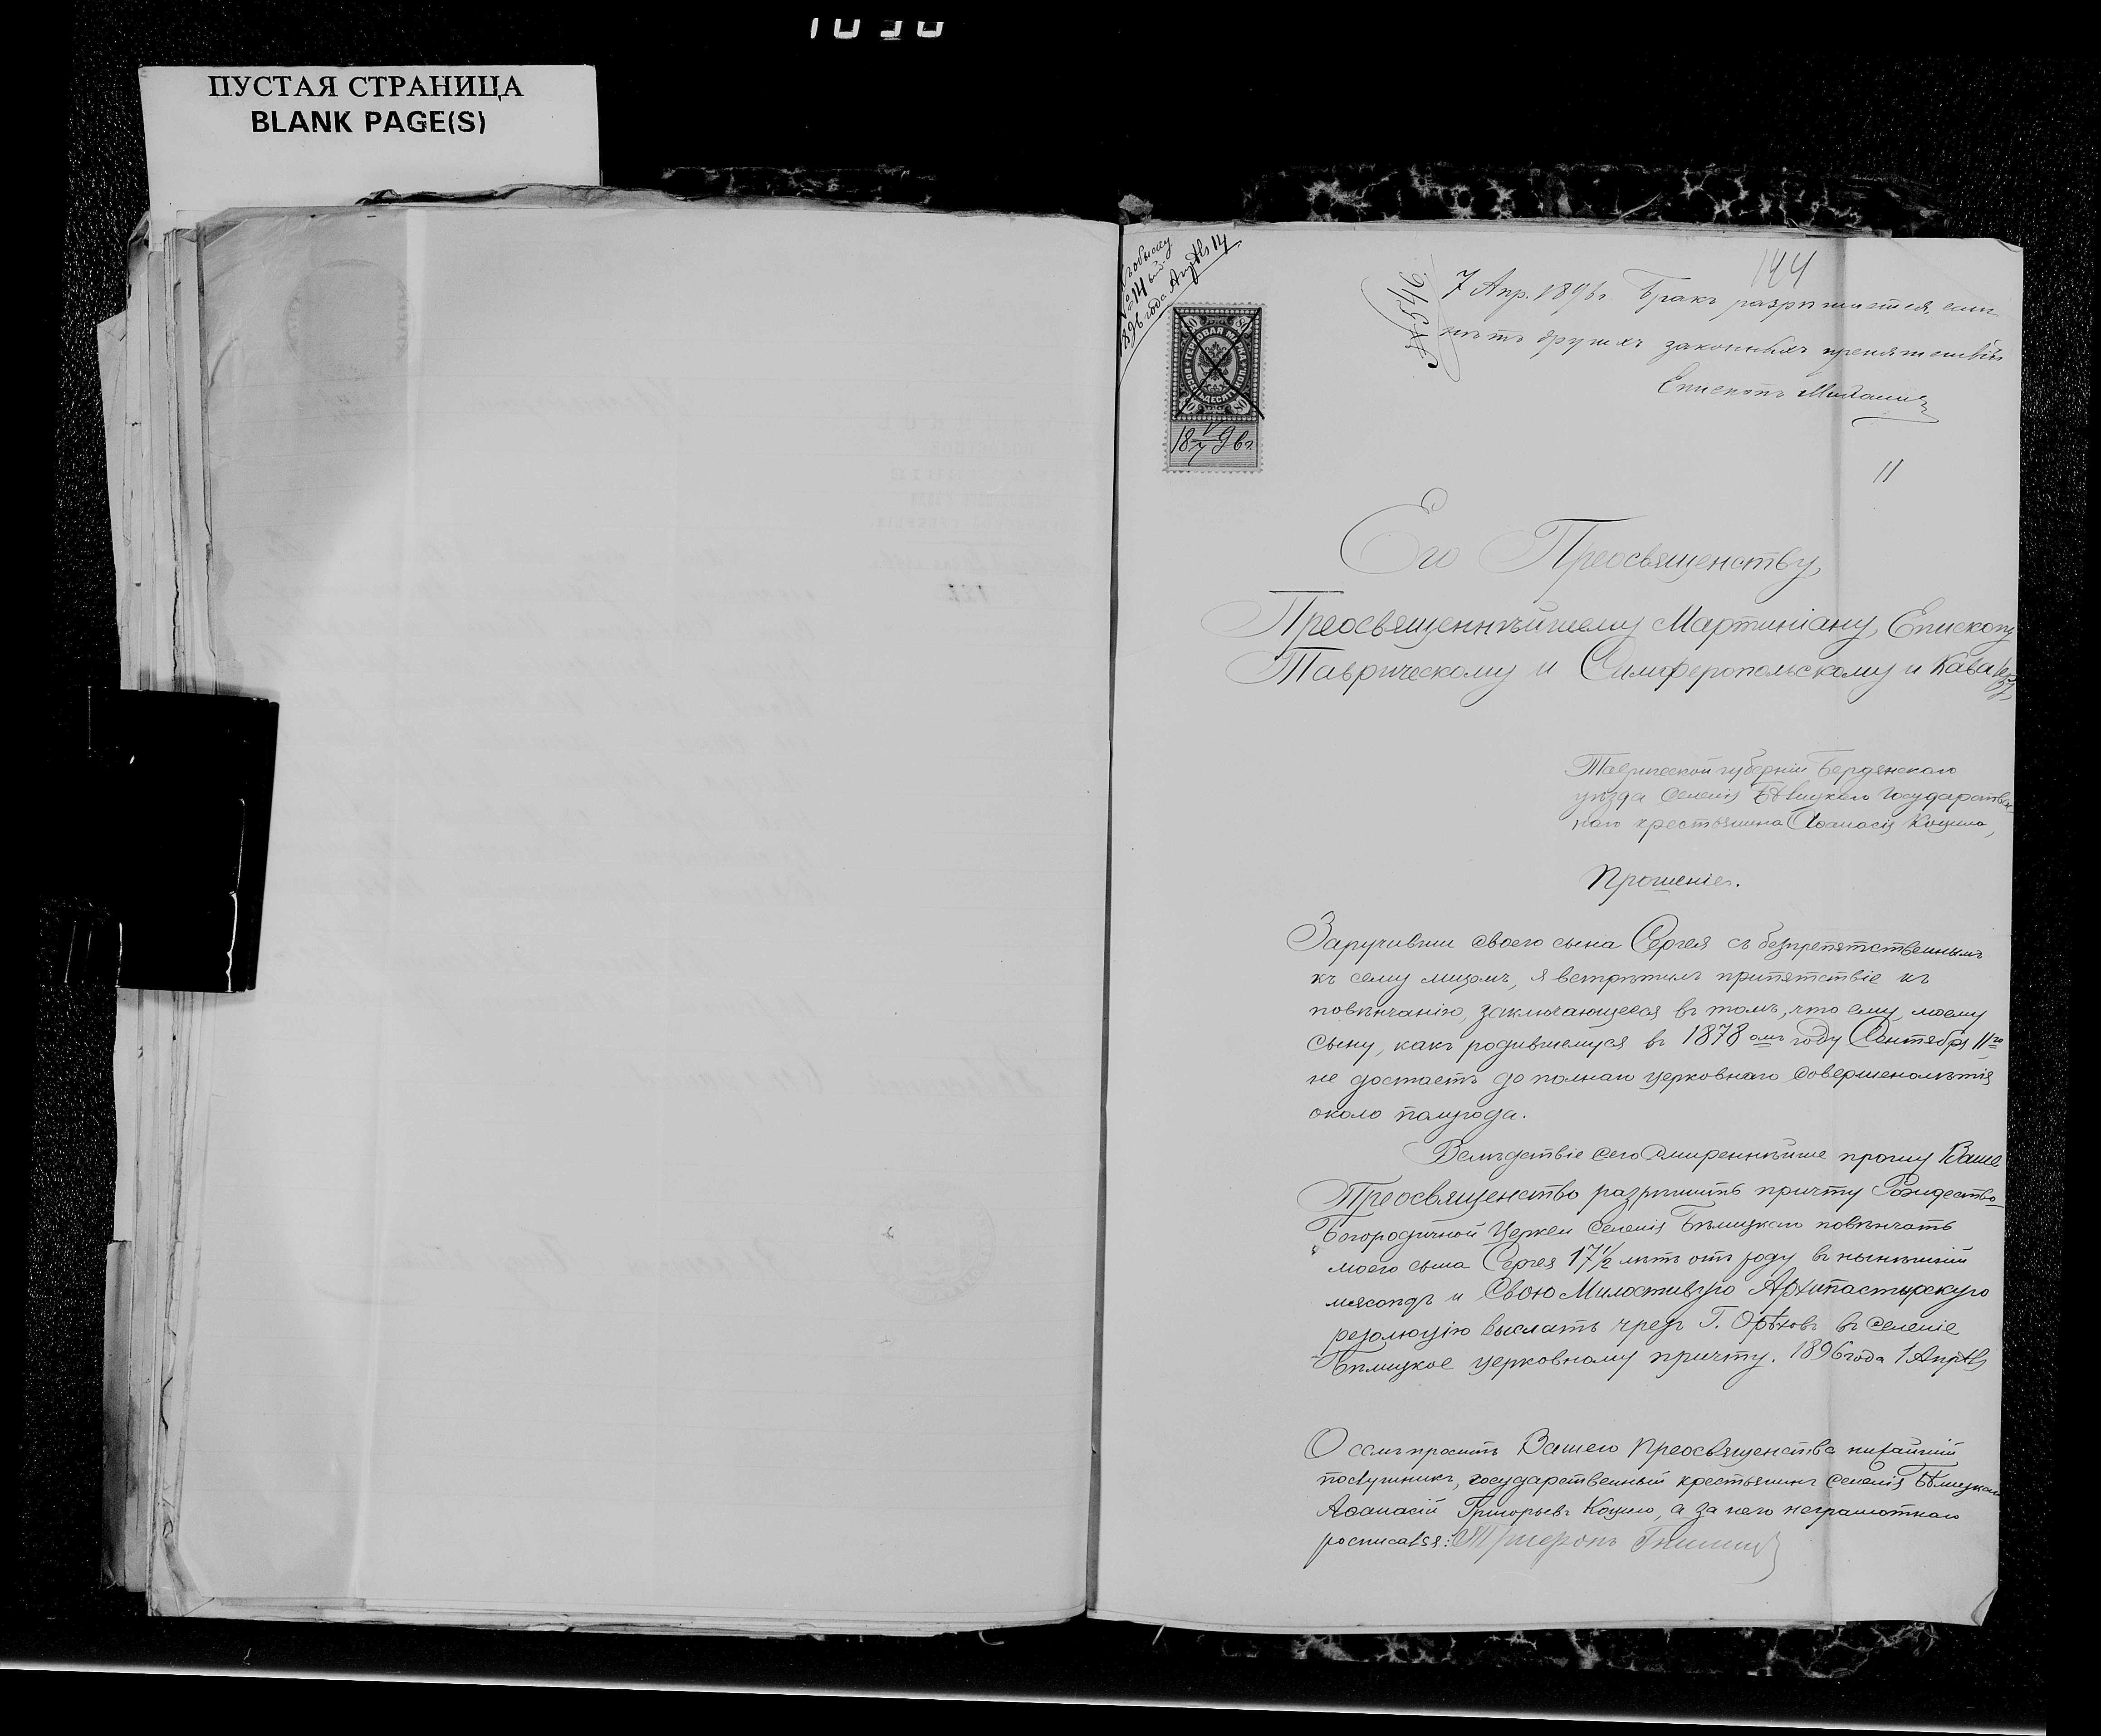 ПУСТАЯ СТРАНИЦА
BLANK PAGE(S)
№ 14
1896 года Апрѣля 14
144
7 Апр. 1896 г. Бракъ разрѣшается, если
нѣтъ другихъ законныхъ препятствій
Епископъ
11
ГЕРБОВАЯ МАРКА
80
18 96 г.
Его Преосвященству,
Преосвященнѣйшему Мартиніану, Епископу
Таврическому и Симферопольскому и Кавалеру,
Таврической губерніи Бердянскаго
уѣзда Селенія Бѣлицкаго Государствен-
наго крестьянина Аѳанасія Коцило,
Прошеніе.
Заручивши своего сына Сергея съ безпрепятственнымъ
къ сему лицомъ, я встрѣтилъ припятствіе къ
повѣнчанію, заключающееся въ томъ, что ему, моему
Сыну, какъ родившемуся въ 1878 омъ году Сентября 11го,
не достаетъ до полнаго церковнаго Совершенолѣтія
около полугода.
Вслѣдствіе сего Смиреннѣйше прошу Ваше
Преосвященство разрѣшить причту Рождество-
Богородичной Церкви Селенія Бѣлицкаго повѣнчать
моего сына Сергея 17 1/2 лѣтъ отъ роду въ нынѣшній
мясоядъ и Свою Милостивую Архипастырскую
резолюцію выслать чрезъ Г. Орѣховъ въ Селеніе
Бѣлицкое церковному причту. 1896 года 1 Апрѣля
О семъ проситъ Вашего Преосвященства нижайшій
послушникъ, государственный крестьянинъ Селенія Бѣлицкаго
Аѳанасій Григорьевъ Коцило, а за него неграмотнаго
росписался: